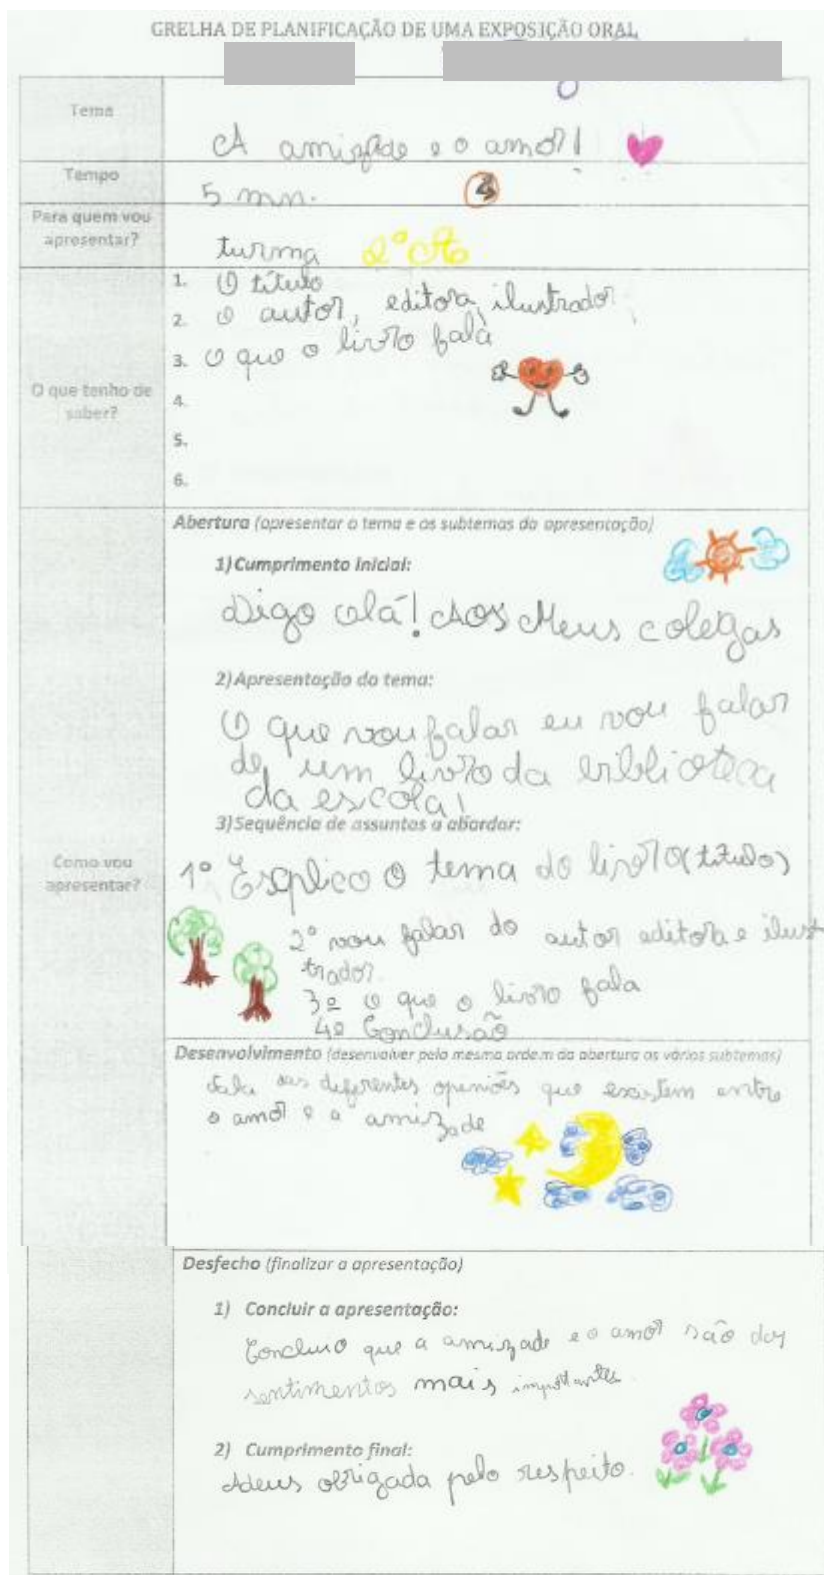 GRELHA DE PLANIFICAÇÃO DE UMA EXPOSIÇÃO ORAL
Tema
A amizade e o amor!
Tempo
5 mn.
Para quem vou
apresentar?
turma 2º A
O que tenho de
saber?
1. O título
2. o autor, editora, ilustrador
3. O que o livro fala
4.
5.
6.
Como vou
apresentar?
Abertura (apresentar o tema e os subtemas da apresentação)
1) Cumprimento inicial:
Digo olá! Aos Meus colegas
2) Apresentação do tema:
O que vou falar eu vou falar
de um livro da biblioteca
da escola!
3) Sequência de assuntos a abordar:
1º Esplico o tema do livro (título)
2º vou falar do autor editora e ilust
trador.
3º o que o livro fala
4º Conclusão
Desenvolvimento (desenvolver pela mesma ordem da abertura os vários subtemas)
Fala das diferentes openiões que existem entre
o amor e a amizade
Desfecho (finalizar a apresentação)
1) Concluir a apresentação:
Concluio que a amizade e o amor são dos
sentimentos mais importantes.
2) Cumprimento final:
Adeus obrigada pelo respeito.